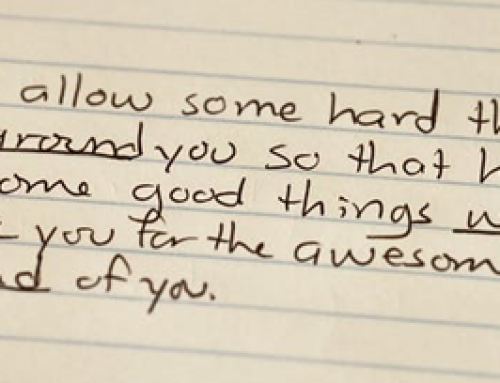 allow some hard th
around you so that h
ome good things w
you for the awesom
of you.